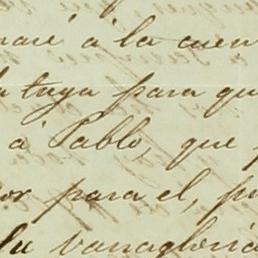 naré á la cuen
la tuya para qu
á Pablo, que
or para el, pu
su vanagloria